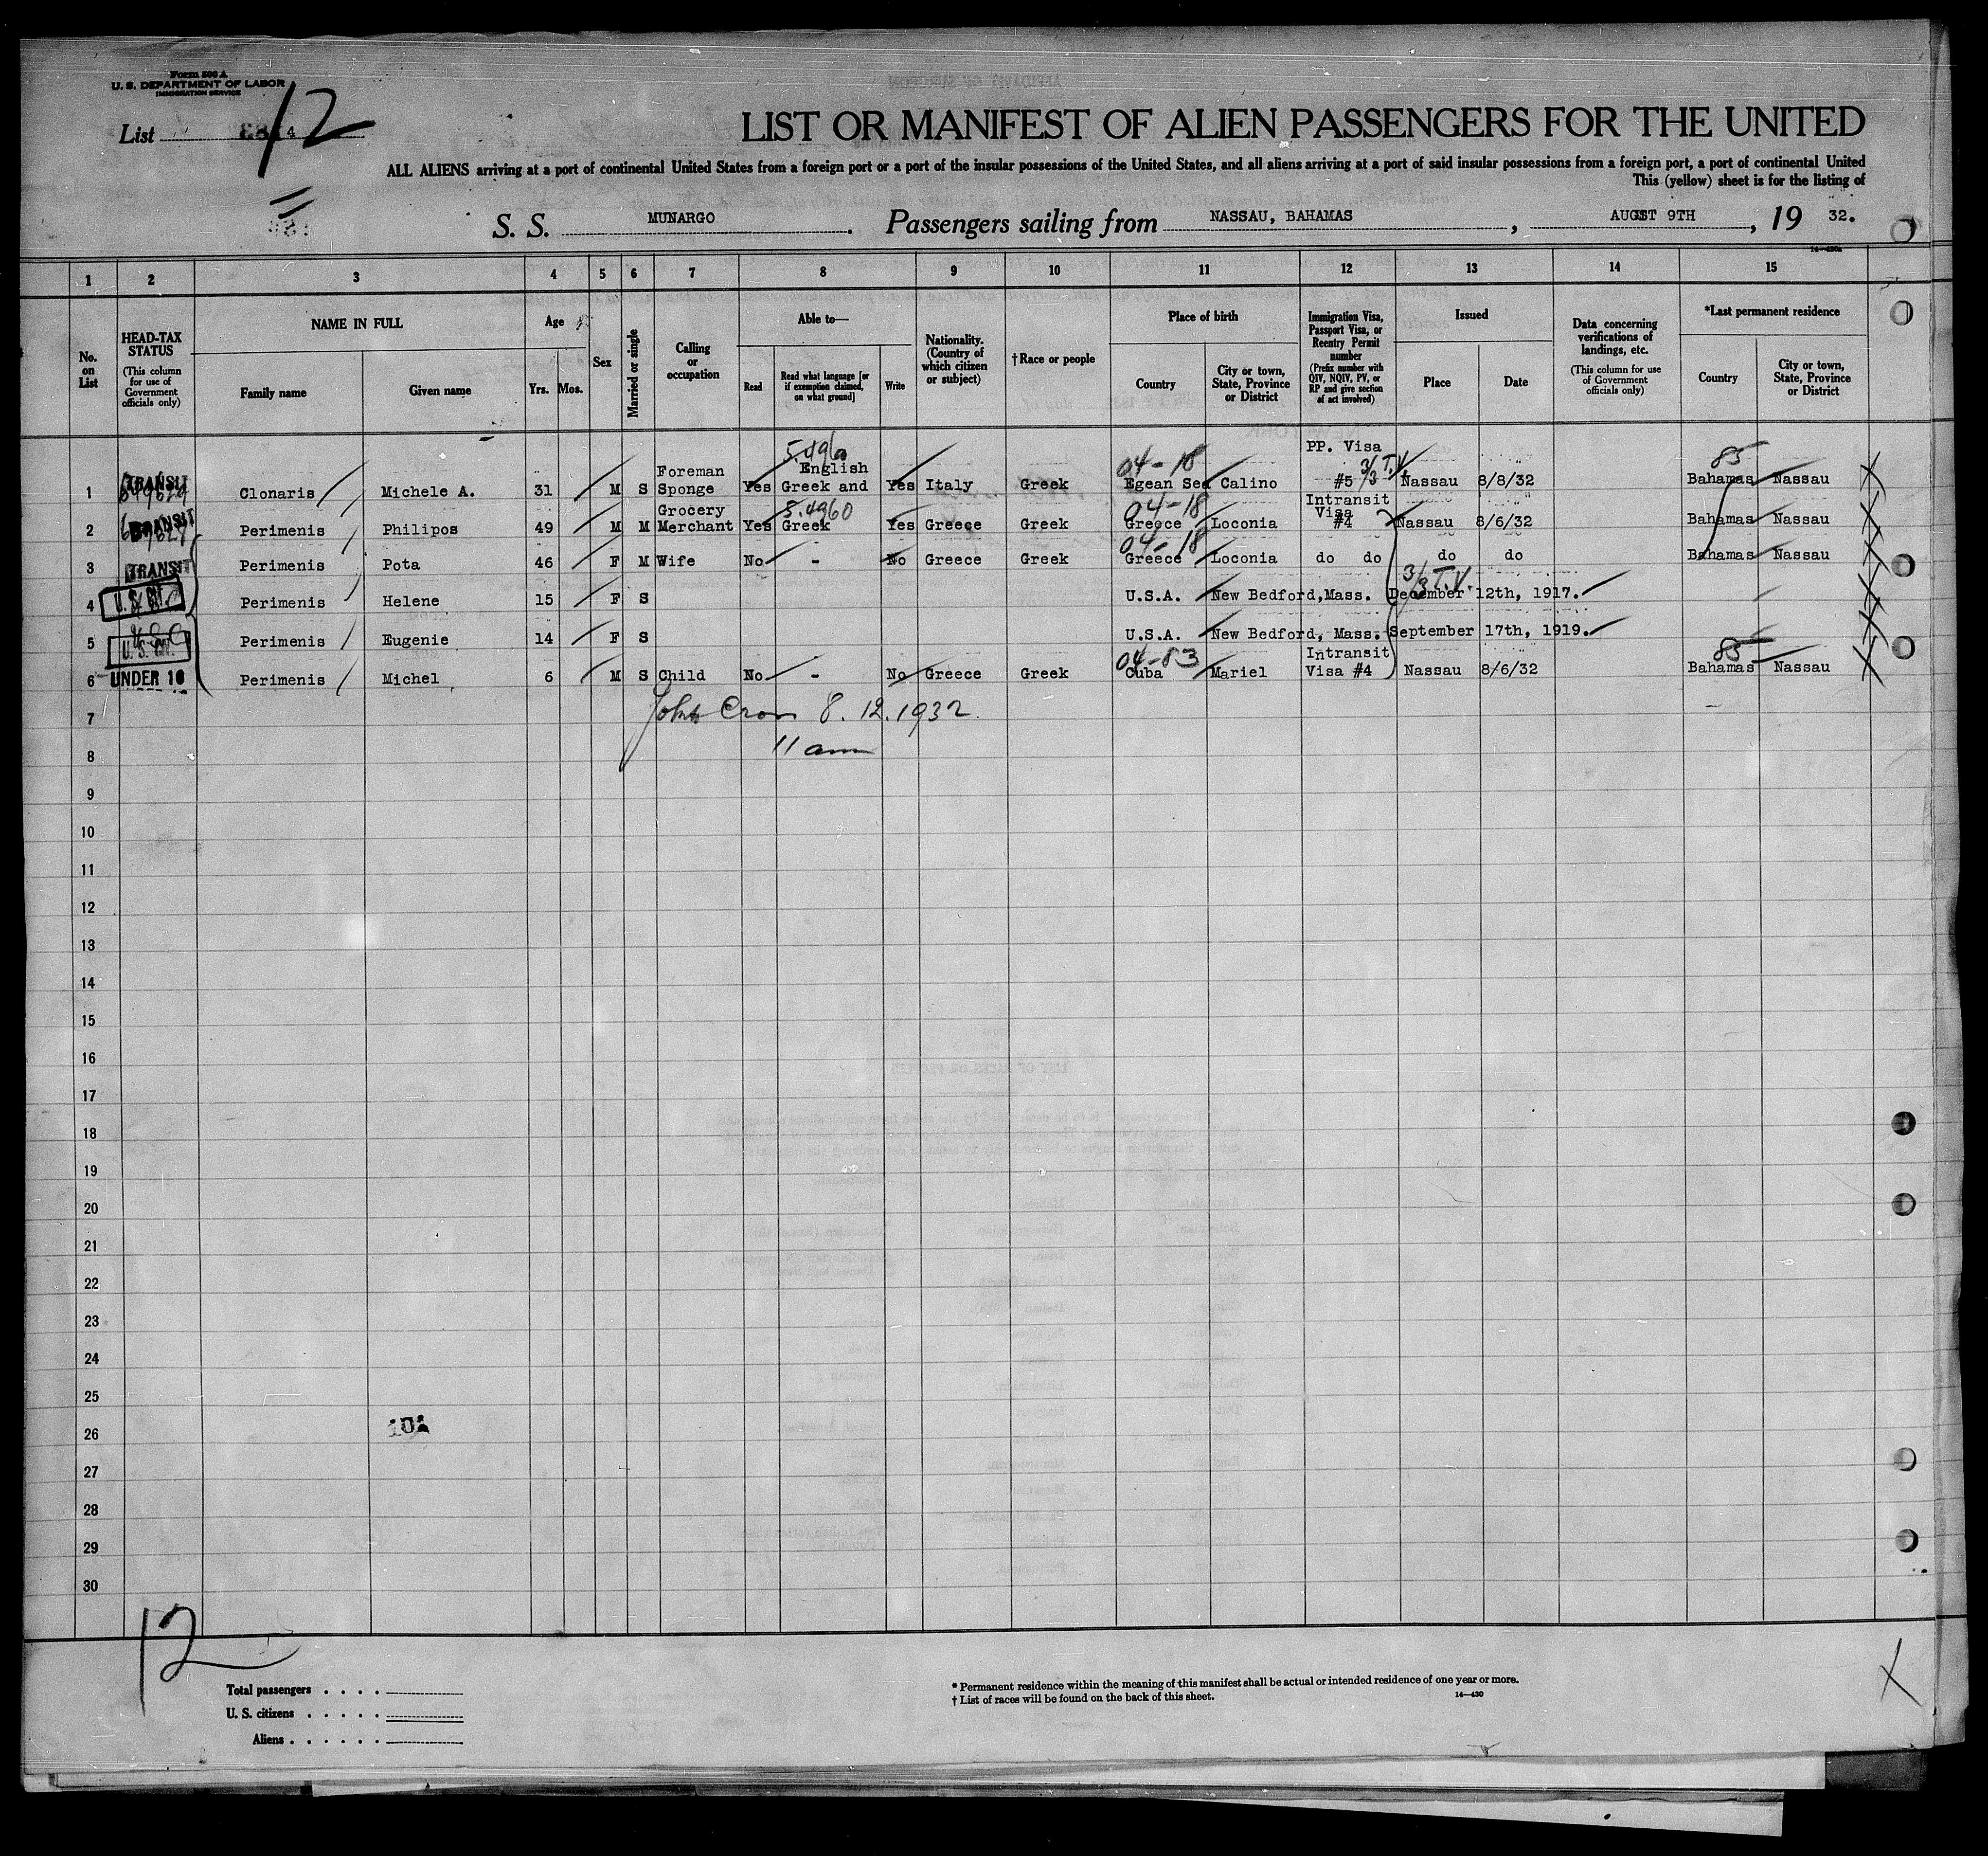 Form 500 A
U. S. DEPARTMENT OF LABOR
IMMIGRATION SERVICE
List 12
LIST OR MANIFEST OF ALIEN PASSENGERS FOR THE UNITED
ALL ALIENS arriving at a port of continental United States from a foreign port or a port of the insular possessions of the United States, and all aliens arriving at a port of said insular possessions from a foreign port, a port of continental United
This (yellow) sheet is for the listing of
S. S. MUNARGO. Passengers sailing from NASSAU, BAHAMAS, AUGST 9TH, 19 32.
14-430a
1 2 3 4 5 6 7 8 9 10 11 12 13 14 15
No. on List
HEAD-TAX STATUS (This column for use of Government officials only)
NAME IN FULL Family name Given name
Age Yrs. Mos.
Sex
Married or single
Calling or occupation
Able to— Read Read what language [or if exemption claimed, on what ground] Write
Nationality. (Country of which citizen or subject)
†Race or people
Place of birth Country City or town, State, Province or District
Immigration Visa, Passport Visa, or Reentry Permit number (Prefix number with QIV, NQIV, PV, or RP and give section of act involved)
Issued Place Date
Data concerning verifications of landings, etc. (This column for use of Government officials only)
*Last permanent residence Country City or town, State, Province or District
5.4960 04-18 PP. Visa 3/3 T.V. 85
1 TRANSIT Clonaris Michele A. 31 M S Foreman Sponge Yes English Greek and Yes Italy Greek Egean Sea Calino #5 Nassau 8/8/32 Bahamas Nassau
5.4960 04-18
2 TRANSIT Perimenis Philipos 49 M M Grocery Merchant Yes Greek Yes Greece Greek Greece Loconia Intransit Visa #4 Nassau 8/6/32 Bahamas Nassau
04-18
3 TRANSIT Perimenis Pota 46 F M Wife No - No Greece Greek Greece Loconia do do do do Bahamas Nassau
3/3 T.V.
4 U.S. CIT. Perimenis Helene 15 F S U.S.A. New Bedford,Mass. December 12th, 1917.
5 U.S. CIT. Perimenis Eugenie 14 F S U.S.A. New Bedford, Mass. September 17th, 1919.
04-83 85
6 UNDER 16 Perimenis Michel 6 M S Child No - No Greece Greek Cuba Mariel Intransit Visa #4 Nassau 8/6/32 Bahamas Nassau
7 John 8.12.1932
8 11 am
9
10
11
12
13
14
15
16
17
18
19
20
21
22
23
24
25
26
101
27
28
29
30
12
Total passengers . . . .
U. S. citizens . . . . .
Aliens . . . . . .
* Permanent residence within the meaning of this manifest shall be actual or intended residence of one year or more.
† List of races will be found on the back of this sheet.
14-430
X